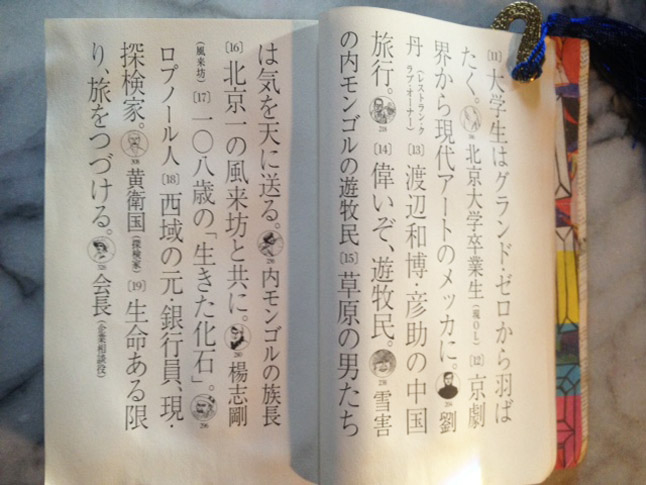 [11] 大学生はグランド・ゼロから羽ば
たく。 北京大学卒業生(現OL) [12] 京劇
界から現代アートのメッカに。 劉
丹(レストラン・クラブ・オーナー) [13] 渡辺和博・彦助の中国
旅行。 [14] 偉いぞ、遊牧民。 雪害
の内モンゴルの遊牧民 [15] 草原の男たち
は気を天に送る。 内モンゴルの族長
[16] 北京一の風来坊と共に。 楊志剛
(風来坊) [17] 一〇八歳の「生きた化石」。
ロプノール人 [18] 西域の元・銀行員、現・
探検家。 黄衛国(探検家) [19] 生命ある限
り、旅をつづける。 会長(企業相談役)